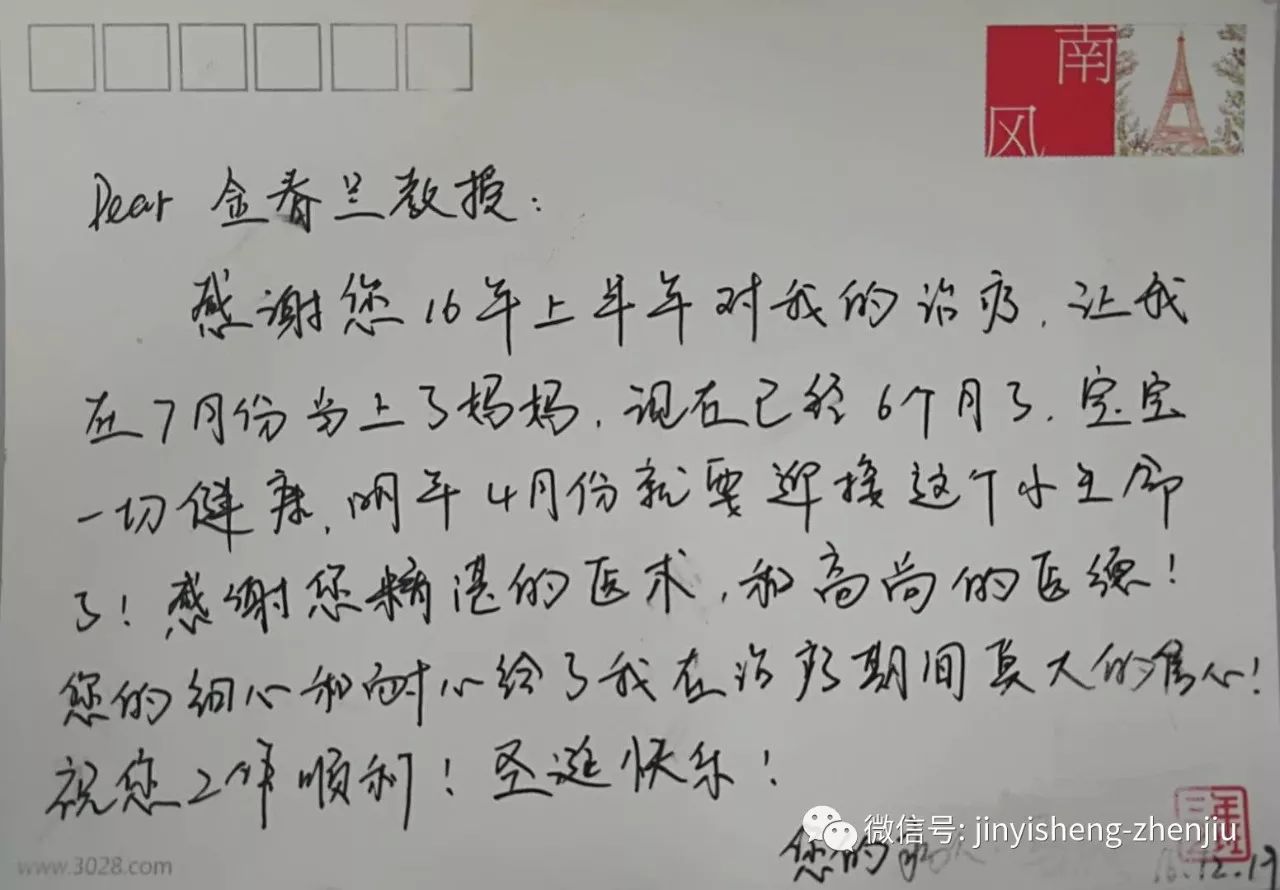 南
风
Dear 金春兰教授：
感谢您16年上半年对我的治疗，让我
在7月份当上了妈妈，现在已经6个月了，宝宝
一切健康，明年4月份就要迎接这个小生命
了！感谢您精湛的医术，和高尚的医德！
您的细心和耐心给了我在治疗期间莫大的信心！
祝您工作顺利！圣诞快乐！
您的
微信号: jinyisheng-zhenjiu
16.12.19
www.3028.com